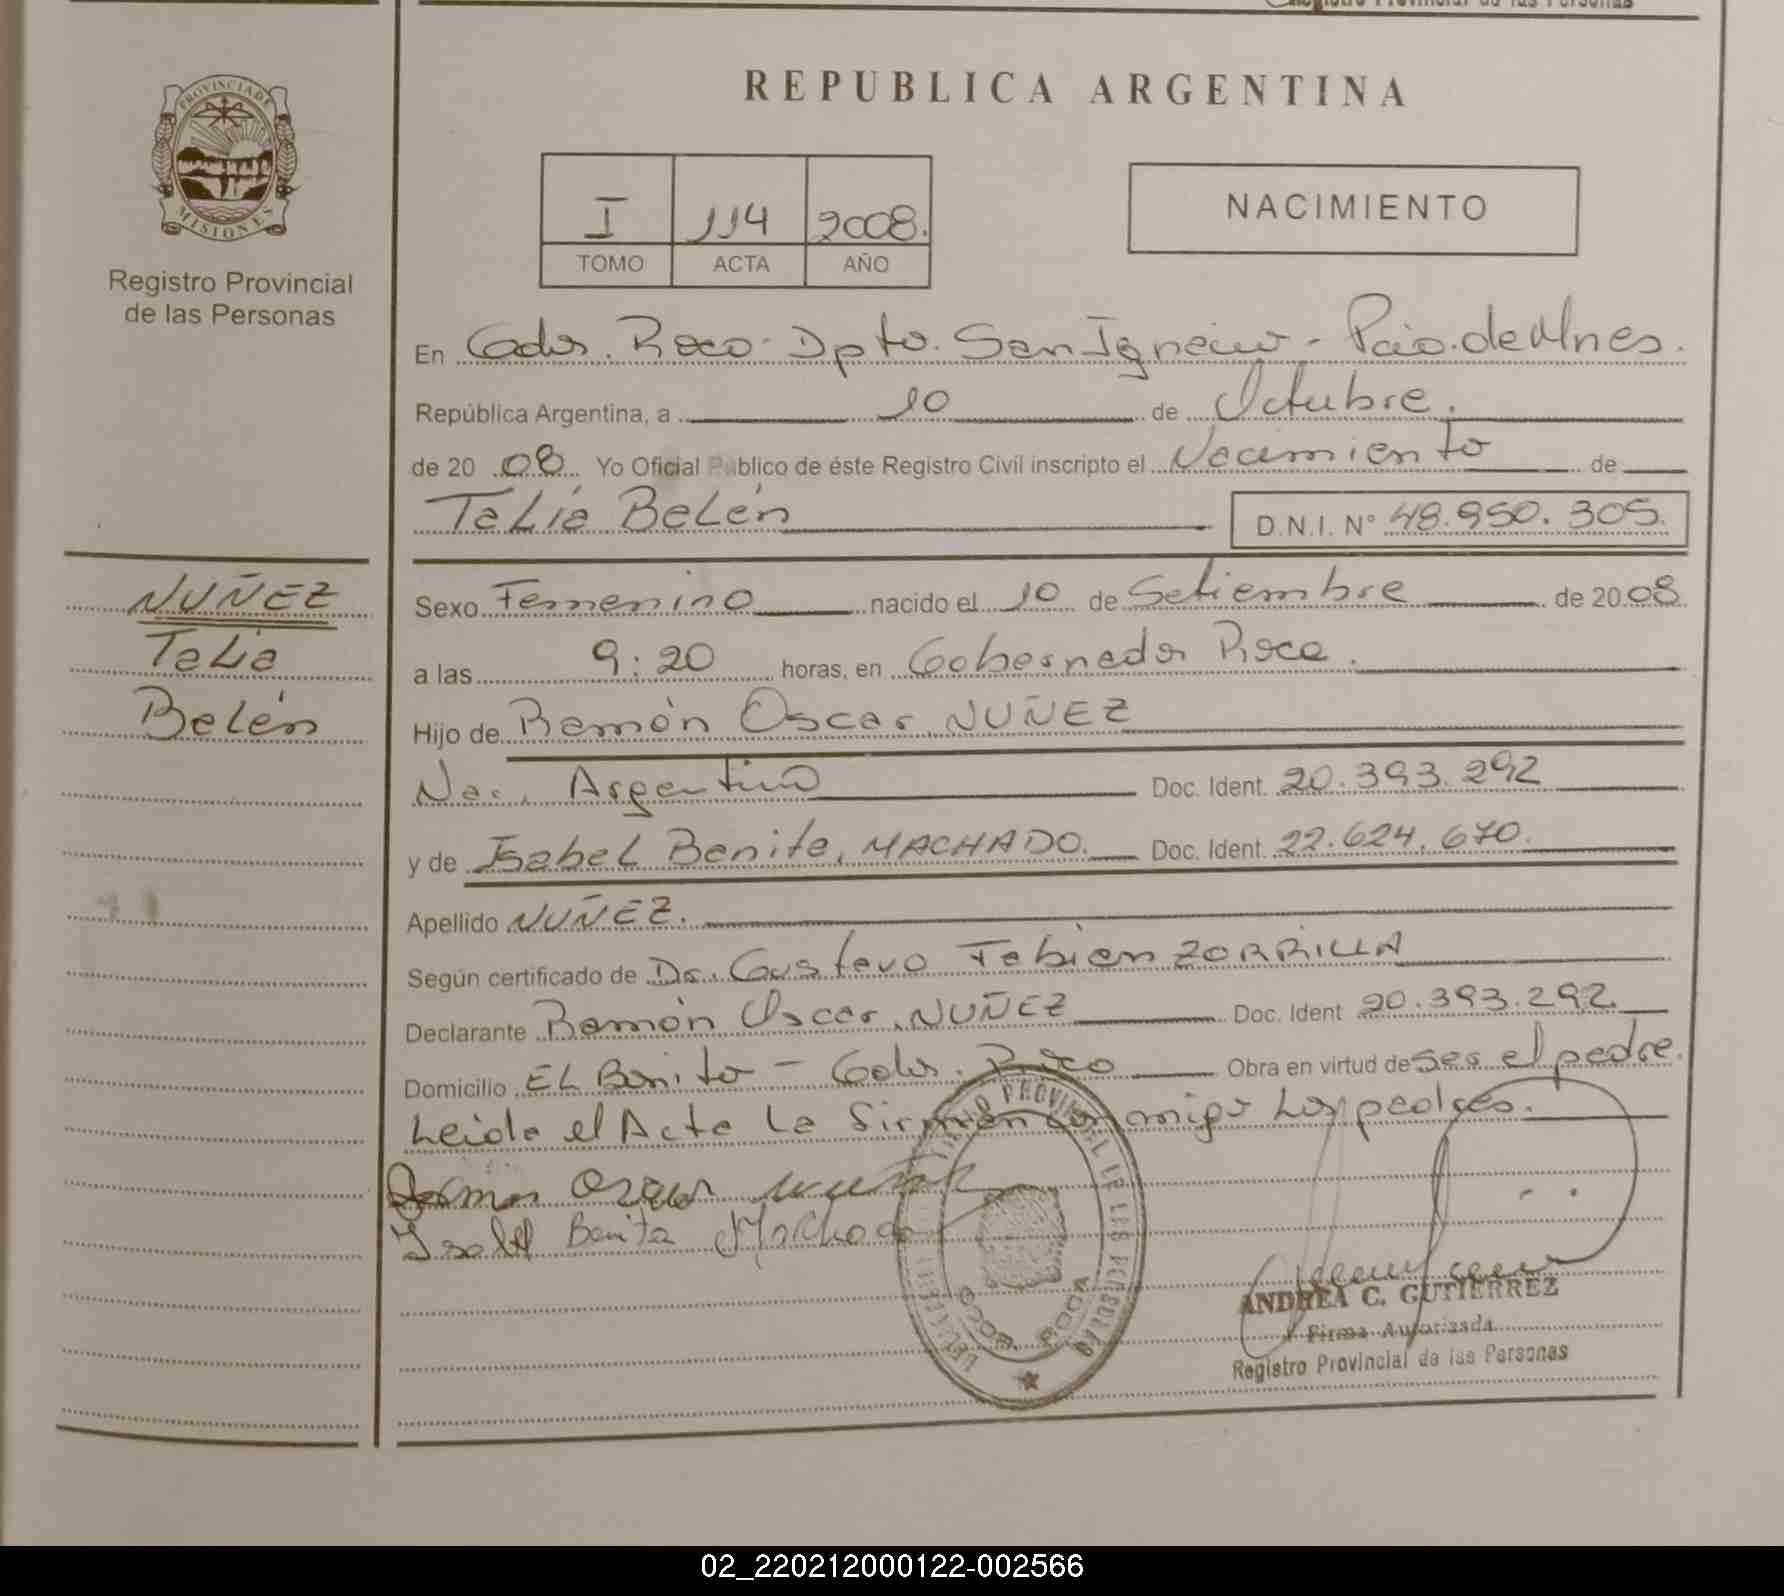 Registro Provincial de las Personas
REPUBLICA ARGENTINA
PROVINCIA DE
MISIONES
Registro Provincial
de las Personas
I 114 2008.
TOMO ACTA AÑO
NACIMIENTO
En Gdor. Roca - Dpto. San Ignacio - Pcia. de Mnes.
República Argentina, a 10 de Octubre.
de 20 08 Yo Oficial Público de éste Registro Civil inscripto el Nacimiento de
Talia Belén D.N.I. N° 48.950.305.
NUÑEZ
Talia
Belén
Sexo Femenino nacido el 10 de Setiembre de 20 08
a las 9:20 horas, en Gobernador Roca.
Hijo de Ramón Oscar NUÑEZ
Nac. Argentino Doc. Ident. 20.393.292
y de Isabel Benita, MACHADO. Doc. Ident. 22.624.670.
Apellido NUÑEZ.
Según certificado de Dr. Gustavo Fabian ZORRILLA
Declarante Ramón Oscar, NUÑEZ Doc. Ident 20.393.292.
Domicilio El Bonito - Gdor. Roca Obra en virtud de ser el padre.
Leida el Acta la firman conmigo los padres.
Ramon Oscar
Isabel Benita Machado
GDOR. ROCA
ANDREA C. GUTIERREZ
Firma Autorizada
Registro Provincial de las Personas
02_220212000122-002566